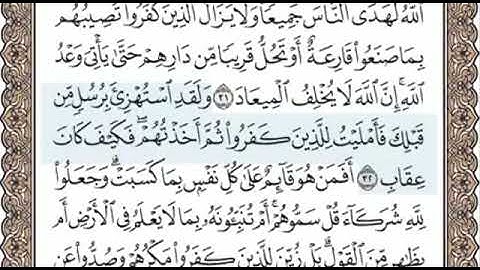 ٱللَّهُ لَهَدَى ٱلنَّاسَ جَمِيعًا وَلَا يَزَالُ ٱلَّذِينَ كَفَرُوا۟ تُصِيبُهُم
بِمَا صَنَعُوا۟ قَارِعَةٌ أَوْ تَحُلُّ قَرِيبًا مِّن دَارِهِمْ حَتَّىٰ يَأْتِىَ وَعْدُ
ٱللَّهِ ۚ إِنَّ ٱللَّهَ لَا يُخْلِفُ ٱلْمِيعَادَ ٣١ وَلَقَدِ ٱسْتُهْزِئَ بِرُسُلٍ مِّن
قَبْلِكَ فَأَمْلَيْتُ لِلَّذِينَ كَفَرُوا۟ ثُمَّ أَخَذْتُهُمْ ۖ فَكَيْفَ كَانَ
عِقَابِ ٣٢ أَفَمَنْ هُوَ قَآئِمٌ عَلَىٰ كُلِّ نَفْسٍۭ بِمَا كَسَبَتْ ۗ وَجَعَلُوا۟
لِلَّهِ شُرَكَآءَ قُلْ سَمُّوهُمْ ۚ أَمْ تُنَبِّـُٔونَهُۥ بِمَا لَا يَعْلَمُ فِى ٱلْأَرْضِ أَم
بِظَٰهِرٍ مِّنَ ٱلْقَوْلِ ۗ بَلْ زُيِّنَ لِلَّذِينَ كَفَرُوا۟ مَكْرُهُمْ وَصُدُّوا۟ عَنِ